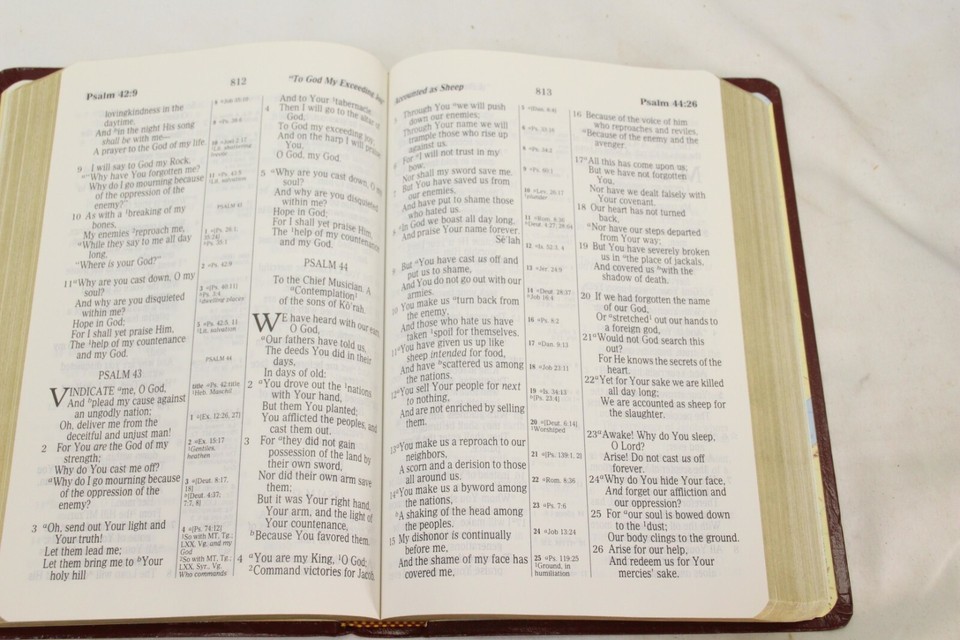 Psalm 42:9
812
"To God My Exceeding Joy"
lovingkindness in the
daytime,
And ᵇin the night His song
shall be with me—
A prayer to the God of my life.
9 I will say to God my Rock,
ᵃ"Why have You forgotten me?
Why do I go mourning because
of the oppression of the
enemy?"
10 As with a ¹breaking of my
bones,
My enemies ²reproach me,
ᵃWhile they say to me all day
long,
"Where is your God?"
11 ᵃWhy are you cast down, O my
soul?
And why are you disquieted
within me?
Hope in God;
For I shall yet praise Him,
The ¹help of my countenance
and my God.
PSALM 43
VINDICATE ᵃme, O God,
And ᵇplead my cause against
an ungodly nation;
Oh, deliver me from the
deceitful and unjust man!
2 For You are the God of my
strength;
Why do You cast me off?
ᵃWhy do I go mourning because
of the oppression of the
enemy?
3 ᵃOh, send out Your light and
Your truth!
Let them lead me;
Let them bring me to ᵇYour
holy hill
PSALM 43
2 ᵃPs. 42:9
¹dwelling places
5 ᵃPs. 42:5, 11
¹Lit. salvation
PSALM 44
title ᵃPs. 42:title
¹Heb. Maschil
1 ᵃ[Ex. 12:26, 27]
2 ᵃEx. 15:17
¹Gentiles,
heathen
3 ᵃ[Deut. 8:17,
18]
ᵇ[Deut. 4:37;
7:7, 8]
4 ᵃ[Ps. 74:12]
¹So with MT, Tg.;
LXX, Vg. and my
God
²So with MT, Tg.;
LXX, Syr., Vg.
Who commands
And to Your ¹tabernacle.
4 Then I will go to the altar of
God,
To God my exceeding joy;
And on the harp I will praise
You,
O God, my God.
5 ᵃWhy are you cast down, O my
soul?
And why are you disquieted
within me?
Hope in God;
For I shall yet praise Him,
The ¹help of my countenance
and my God.
PSALM 44
To the Chief Musician. A
ᵃContemplation¹
of the sons of Kōʹrah.
WE have heard with our ears,
O God,
ᵃOur fathers have told us,
The deeds You did in their
days,
In days of old:
2 ᵃYou drove out the ¹nations
with Your hand,
But them You planted;
You afflicted the peoples, and
cast them out.
3 For ᵃthey did not gain
possession of the land by
their own sword,
Nor did their own arm save
them;
But it was Your right hand,
Your arm, and the light of
Your countenance,
ᵇBecause You favored them.
4 ᵃYou are my King, ¹O God;
²Command victories for Jacob.
Accounted as Sheep
813
Psalm 44:26
Through You ᵃwe will push
down our enemies;
Through Your name we will
trample those who rise up
against us.
For ᵃI will not trust in my
bow,
Nor shall my sword save me.
But You have saved us from
our enemies,
And have put to shame those
who hated us.
8 ᵃIn God we boast all day long,
And praise Your name forever.
Sēʹlah
9 But ᵃYou have cast us off and
put us to shame,
And You do not go out with our
armies.
10 You make us ᵃturn back from
the enemy,
And those who hate us have
taken ¹spoil for themselves.
11 ᵃYou have given us up like
sheep intended for food,
And have ᵇscattered us among
the nations.
12 ᵃYou sell Your people for next
to nothing,
And are not enriched by selling
them.
13 ᵃYou make us a reproach to our
neighbors,
A scorn and a derision to those
all around us.
14 ᵃYou make us a byword among
the nations,
ᵇA shaking of the head among
the peoples.
15 My dishonor is continually
before me,
And the shame of my face has
covered me,
5 ᵃ[Dan. 8:4]
6 ᵃPs. 33:16
8 ᵃPs. 34:2
9 ᵃPs. 60:1
10 ᵃLev. 26:17
¹plunder
11 ᵃRom. 8:36
ᵇDeut. 4:27; 28:64
12 ᵃIs. 52:3, 4
13 ᵃJer. 24:9
14 ᵃDeut. 28:37
ᵇJob 16:4
16 ᵃPs. 8:2
17 ᵃDan. 9:13
18 ᵃJob 23:11
19 ᵃIs. 34:13
ᵇ[Ps. 23:4]
20 ᵃ[Deut. 6:14]
¹Worshiped
21 ᵃ[Ps. 139:1, 2]
22 ᵃRom. 8:36
23 ᵃPs. 7:6
24 ᵃJob 13:24
25 ᵃPs. 119:25
¹Ground, in
humiliation
16 Because of the voice of him
who reproaches and reviles,
ᵃBecause of the enemy and the
avenger.
17 ᵃAll this has come upon us;
But we have not forgotten
You,
Nor have we dealt falsely with
Your covenant.
18 Our heart has not turned
back,
ᵃNor have our steps departed
from Your way;
19 But You have severely broken
us in ᵃthe place of jackals,
And covered us ᵇwith the
shadow of death.
20 If we had forgotten the name
of our God,
Or ᵃstretched¹ out our hands to
a foreign god,
21 ᵃWould not God search this
out?
For He knows the secrets of the
heart.
22 ᵃYet for Your sake we are killed
all day long;
We are accounted as sheep for
the slaughter.
23 ᵃAwake! Why do You sleep,
O Lord?
Arise! Do not cast us off
forever.
24 ᵃWhy do You hide Your face,
And forget our affliction and
our oppression?
25 For ᵃour soul is bowed down
to the ¹dust;
Our body clings to the ground.
26 Arise for our help,
And redeem us for Your
mercies' sake.